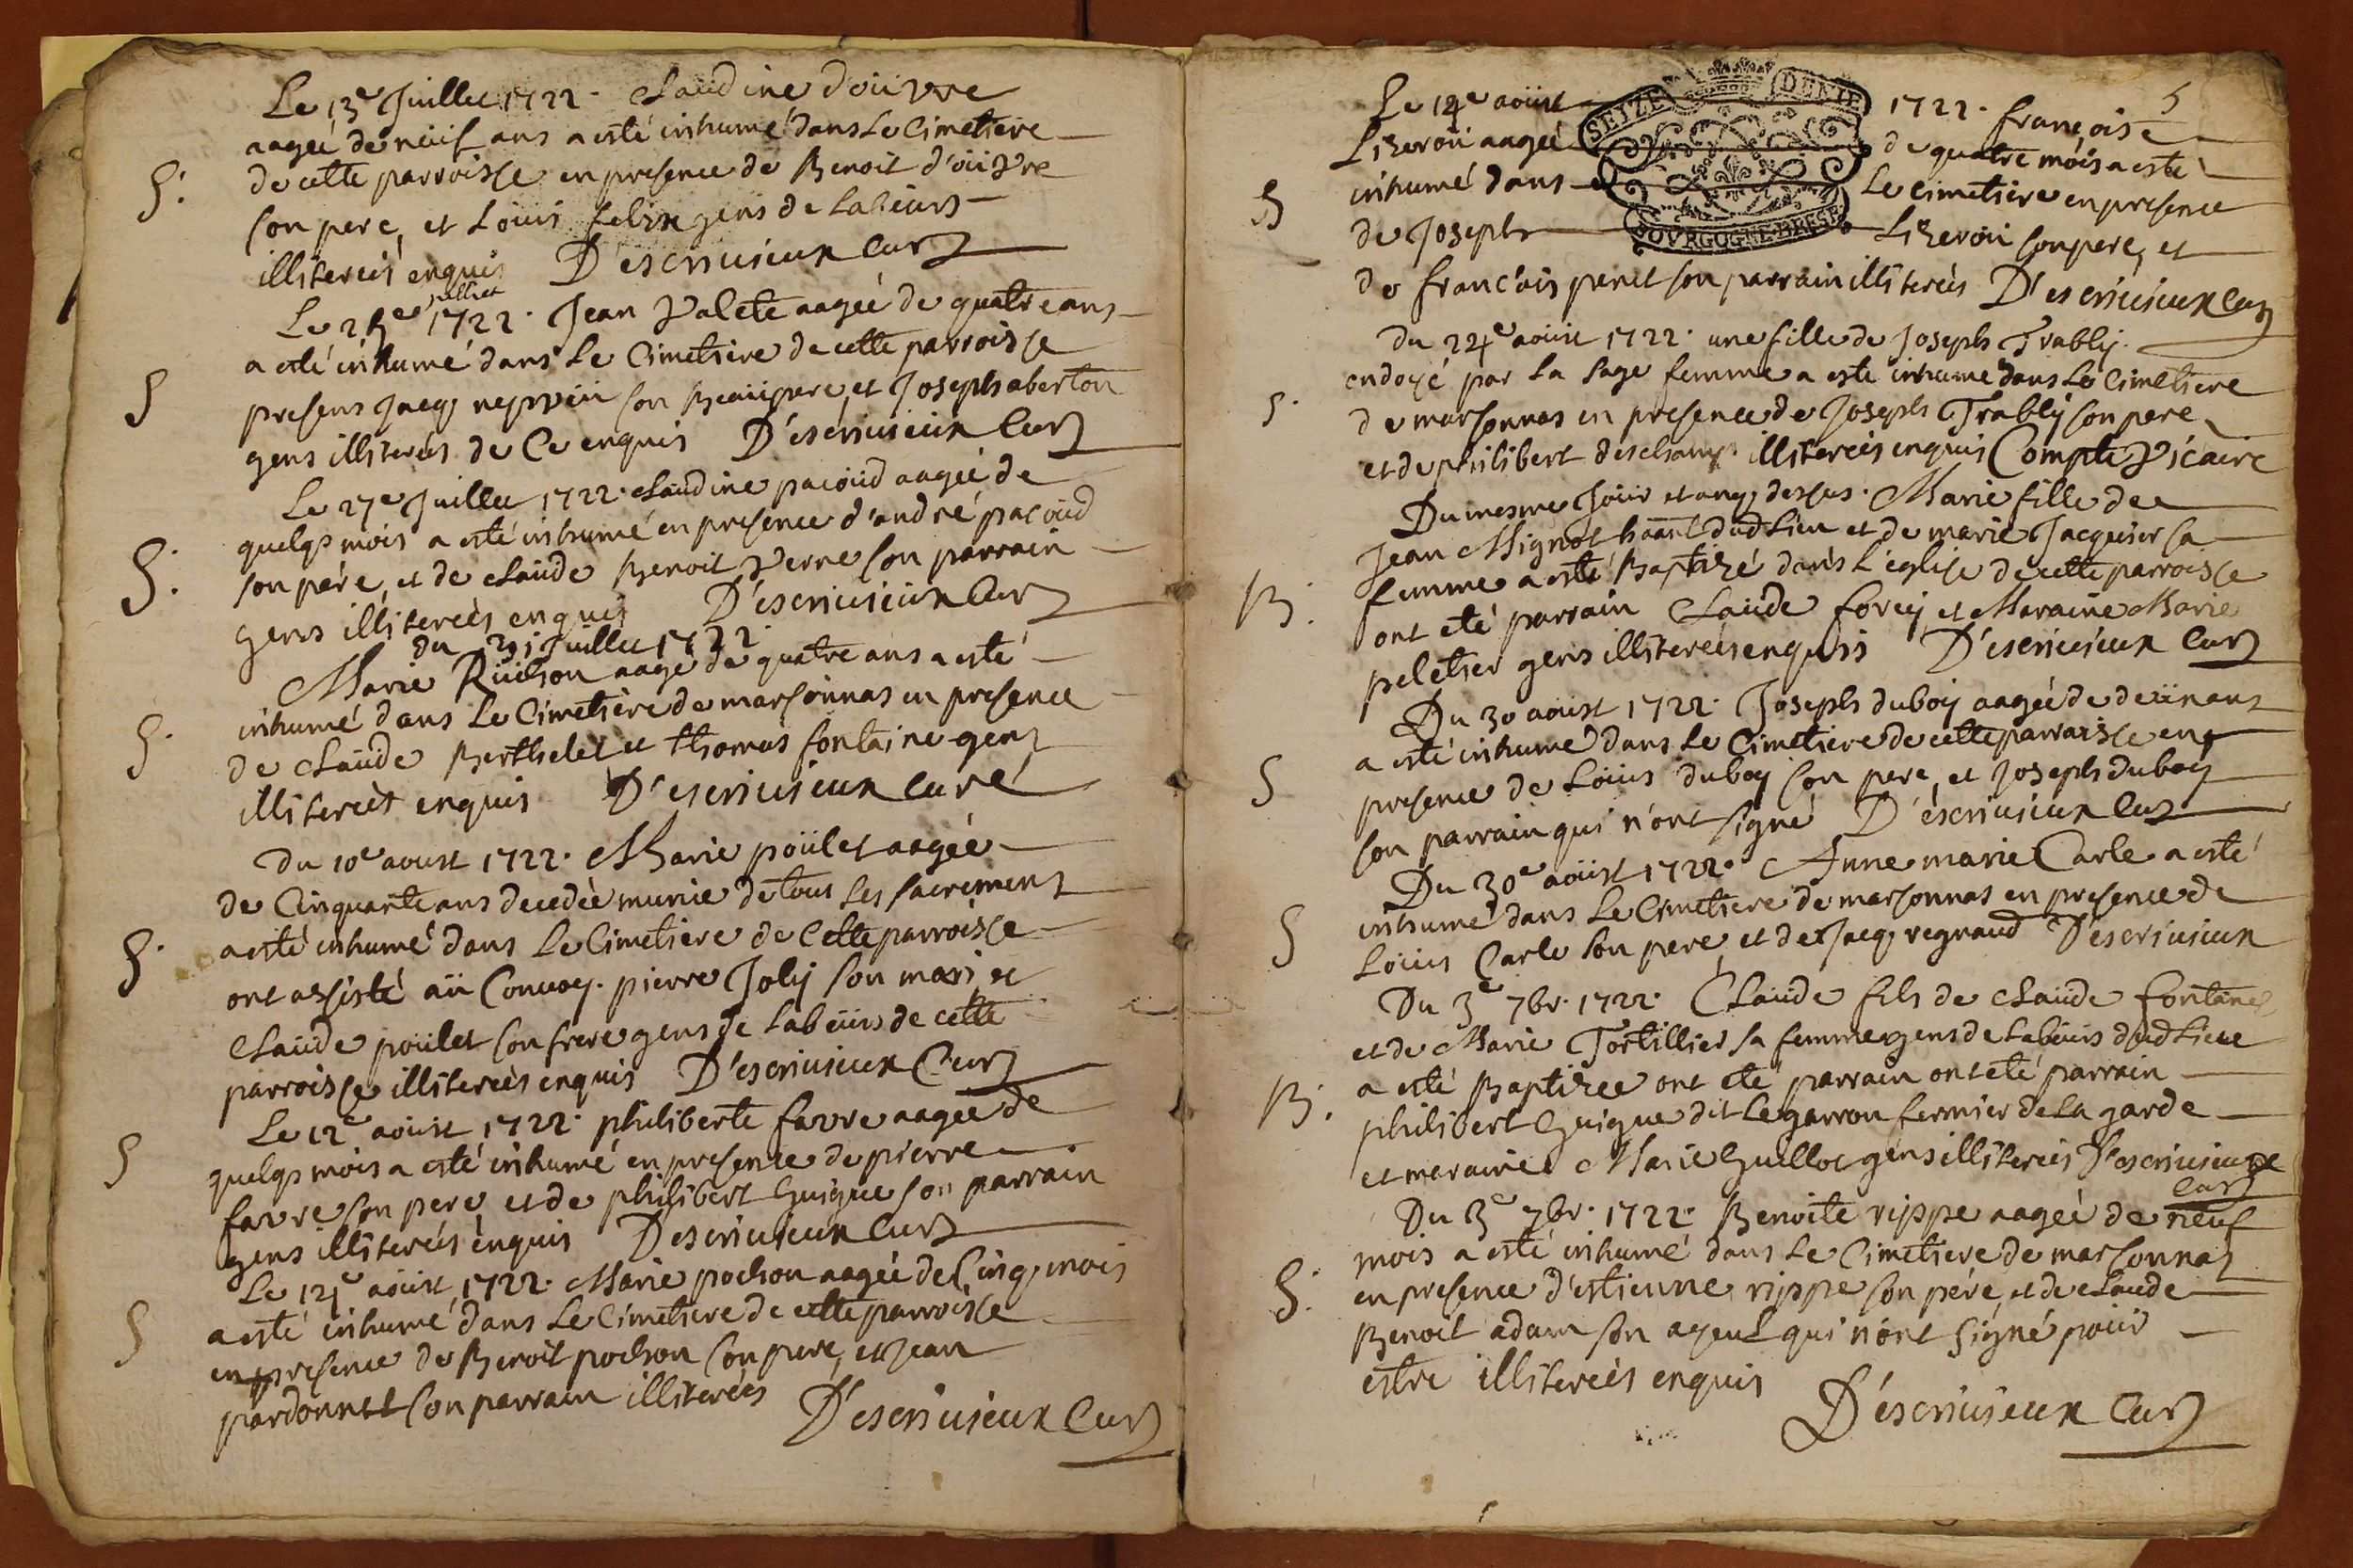 Le 13e Juillet 1722. Claudine d'ouvre
aageé de neuf ans a esté inhumé dans Le Cimetiere
S. de cette parroisse en presence de Benoit d'ouvre
son pere, et Louis felix gens de Labeurs
illitereés enquis D'escriuieux Curé
juillet
Le 25e 1722. Jean Valete aageé de quatre ans
a esté inhumé dans Le Cimetiere de cette parroisse
S presens Jacq neppein son Beaupere, et Joseph aberton
gens illitereés de Ce enquis D'escriuieux Curé
Le 27e Juillet 1722. Claudine pacoud aageé de
quelqs mois a esté inhumé en presence d'andré pacoud
S. son pére, et de Claude Benoit Verne son parrain
gens illitereés enquis D'escriuieux Curé
du 31 Juillet 1722.
Marie Ruchon aagé de quatre ans a esté
S. inhumé dans Le Cimetiere de marsonnas en presence
de Claude Berthelet et thomas fontaine gens
illitereés enquis D'escriuieux Curé
Du 10e aoust 1722. Marie poulet aageé
de Cinquante ans decedeé munie de tous les sacremens
S. a esté inhumé dans Le Cimetiere de Cette parroisse
ont assisté au Convoy. pierre Joly son mari et
Claude poulet son frere gens de Labeurs de cette
parroisse illitereés enquis D'escriuieux Curé
S Le 12e aoust 1722. philiberte favre aageé de
quelqs mois a esté inhumé en presence de pierre
favre son pere et de philibert Guigue son parrain
gens illitereés enquis D'escriuieux Curé
Le 14e aoust 1722. Marie pochon aageé de Cinq mois
S a esté inhumé dans Le Cimetiere de cette parroisse
en presence de Benoit pochon son pere, et Jean
pardonnet son parrain illitereés D'escriuieux Curé
5
SEIZE DENIE
BOVRGOGNE BRESSE
Le 14e aoust 1722. françoise
Lizeron aageé de quatre mois a esté
S inhumé dans Le Cimetiere en presence
de Joseph Lizeron son pere, et
de francois penet son parrain illitereés D'escriuieux Curé
du 24e aoust 1722. une fille de Joseph Trably.
endoyé par La sage femme a esté inhumé dans Le Cimetiere
S. de marsonnas en presence de Joseph Trably son pere
et de philibert deschamps illitereés enquis Compte Vicaire
Du mesme Jour et an q dessus. Marie fille de
Jean Mignot haant dud Lieu et de marie Jacquier sa
B. femme a esté Baptizé dans L'eglise de cette parroisse
ont eté parrain Claude forey, et Maraine Marie
peletier gens illitereés enquis D'escriuieux Curé
Du 30 aoust 1722. Joseph duboy aageé de deux ans
a esté inhumé dans Le Cimetiere de cette parroisse en
S presence de Louis duboy son pere, et Joseph duboy
son parrain qui n'ont signé D'escriuieux Curé
Du 30e aoust 1722. Anne marie Carle a esté
S inhumé dans Le Cimetiere de marsonnas en presence de
Louis Carle son pere, et de Jacq regnaud D'escriuieux
Du 3e 7br. 1722. Claude fils de Claude fontane
et de Marie Tortillier sa femme gens de Labeurs dud Lieu
B. a esté Baptizee ont eté parrain ont eté parrain
philibert Guigue dit Legarron fermier de La garde
et maraine Marie Guillot gens illitereés D'escriuieux
Curé
Du 3e 7br. 1722. Benoite rippe aageé de neuf
mois a esté inhumé dans Le Cimetiere de marsonnas
S. en presence d'estienne rippe son pére, et de Claude
Benoit adam son ayeul qui n'ont signé pour
estre illitereés enquis
D'escriuieux Curé